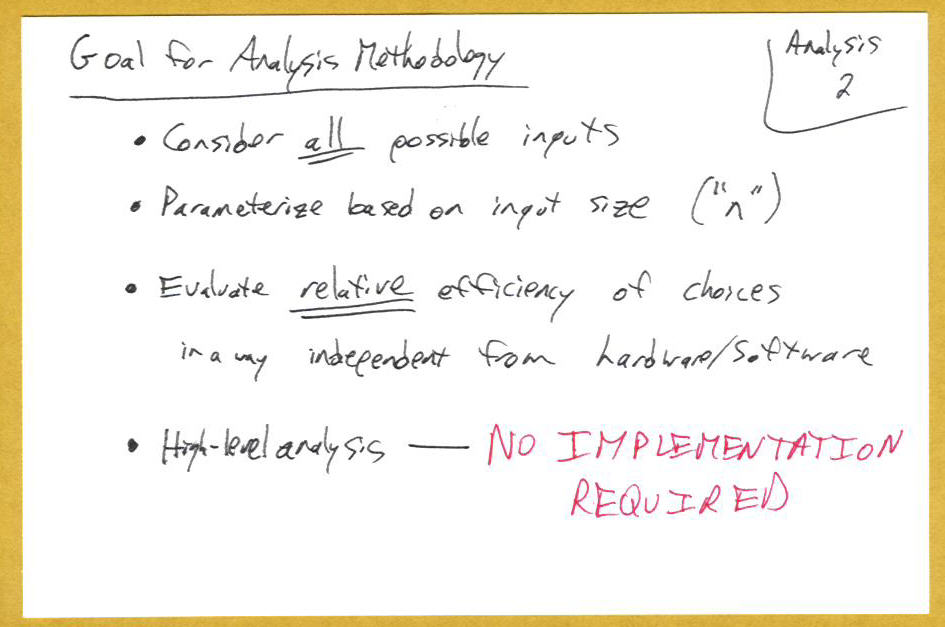 Goal for Analysis Methodology
Analysis
2
• Consider all possible inputs
• Parameterize based on input size ("n")
• Evaluate relative efficiency of choices
in a way independent from hardware/software
• High-level analysis — NO IMPLEMENTATION
REQUIRED